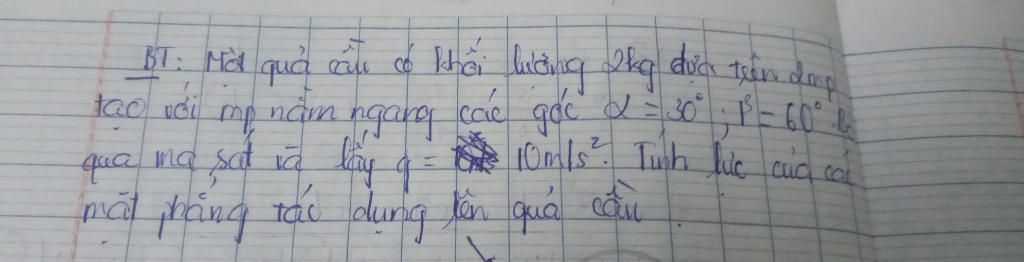 BT: Một quả cầu có khối lượng 2kg dựa trên 2mp
tạo với mp nằm ngang các góc α = 30°; β = 60°. Bỏ
qua ma sát và lấy g = 10m/s². Tính lực của các
mặt phẳng tác dụng lên quả cầu.